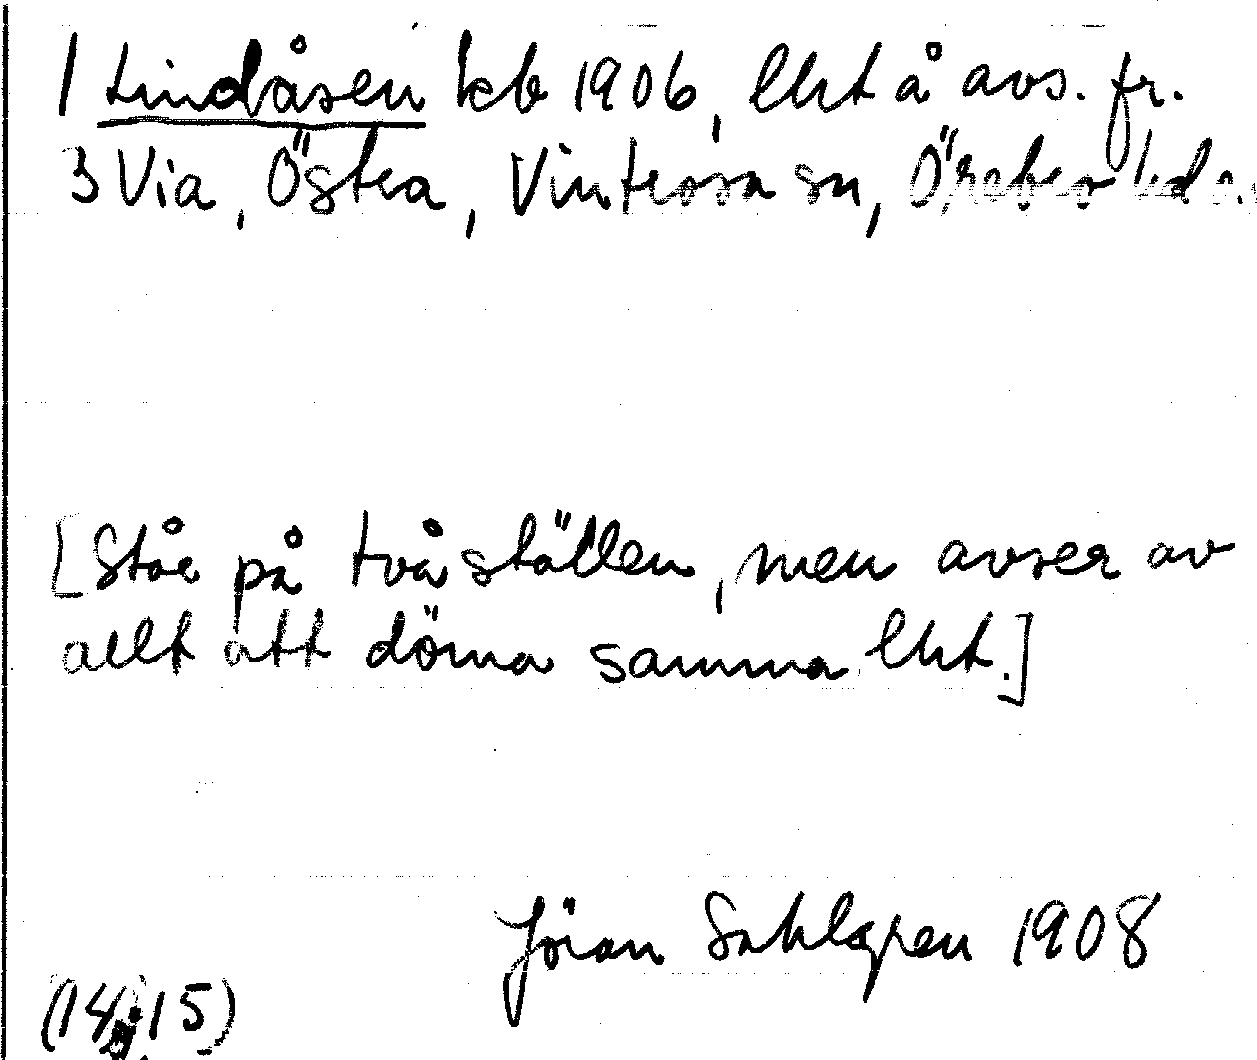 1 Lindåsen kb 1906, lht å avs. fr.
3 Via, Östra, Vintrosa sn, Örebro hd
[Står på två ställen, men avser av
allt att döma samma lht.]
Jöran Sahlgren 1908
(14, 15)